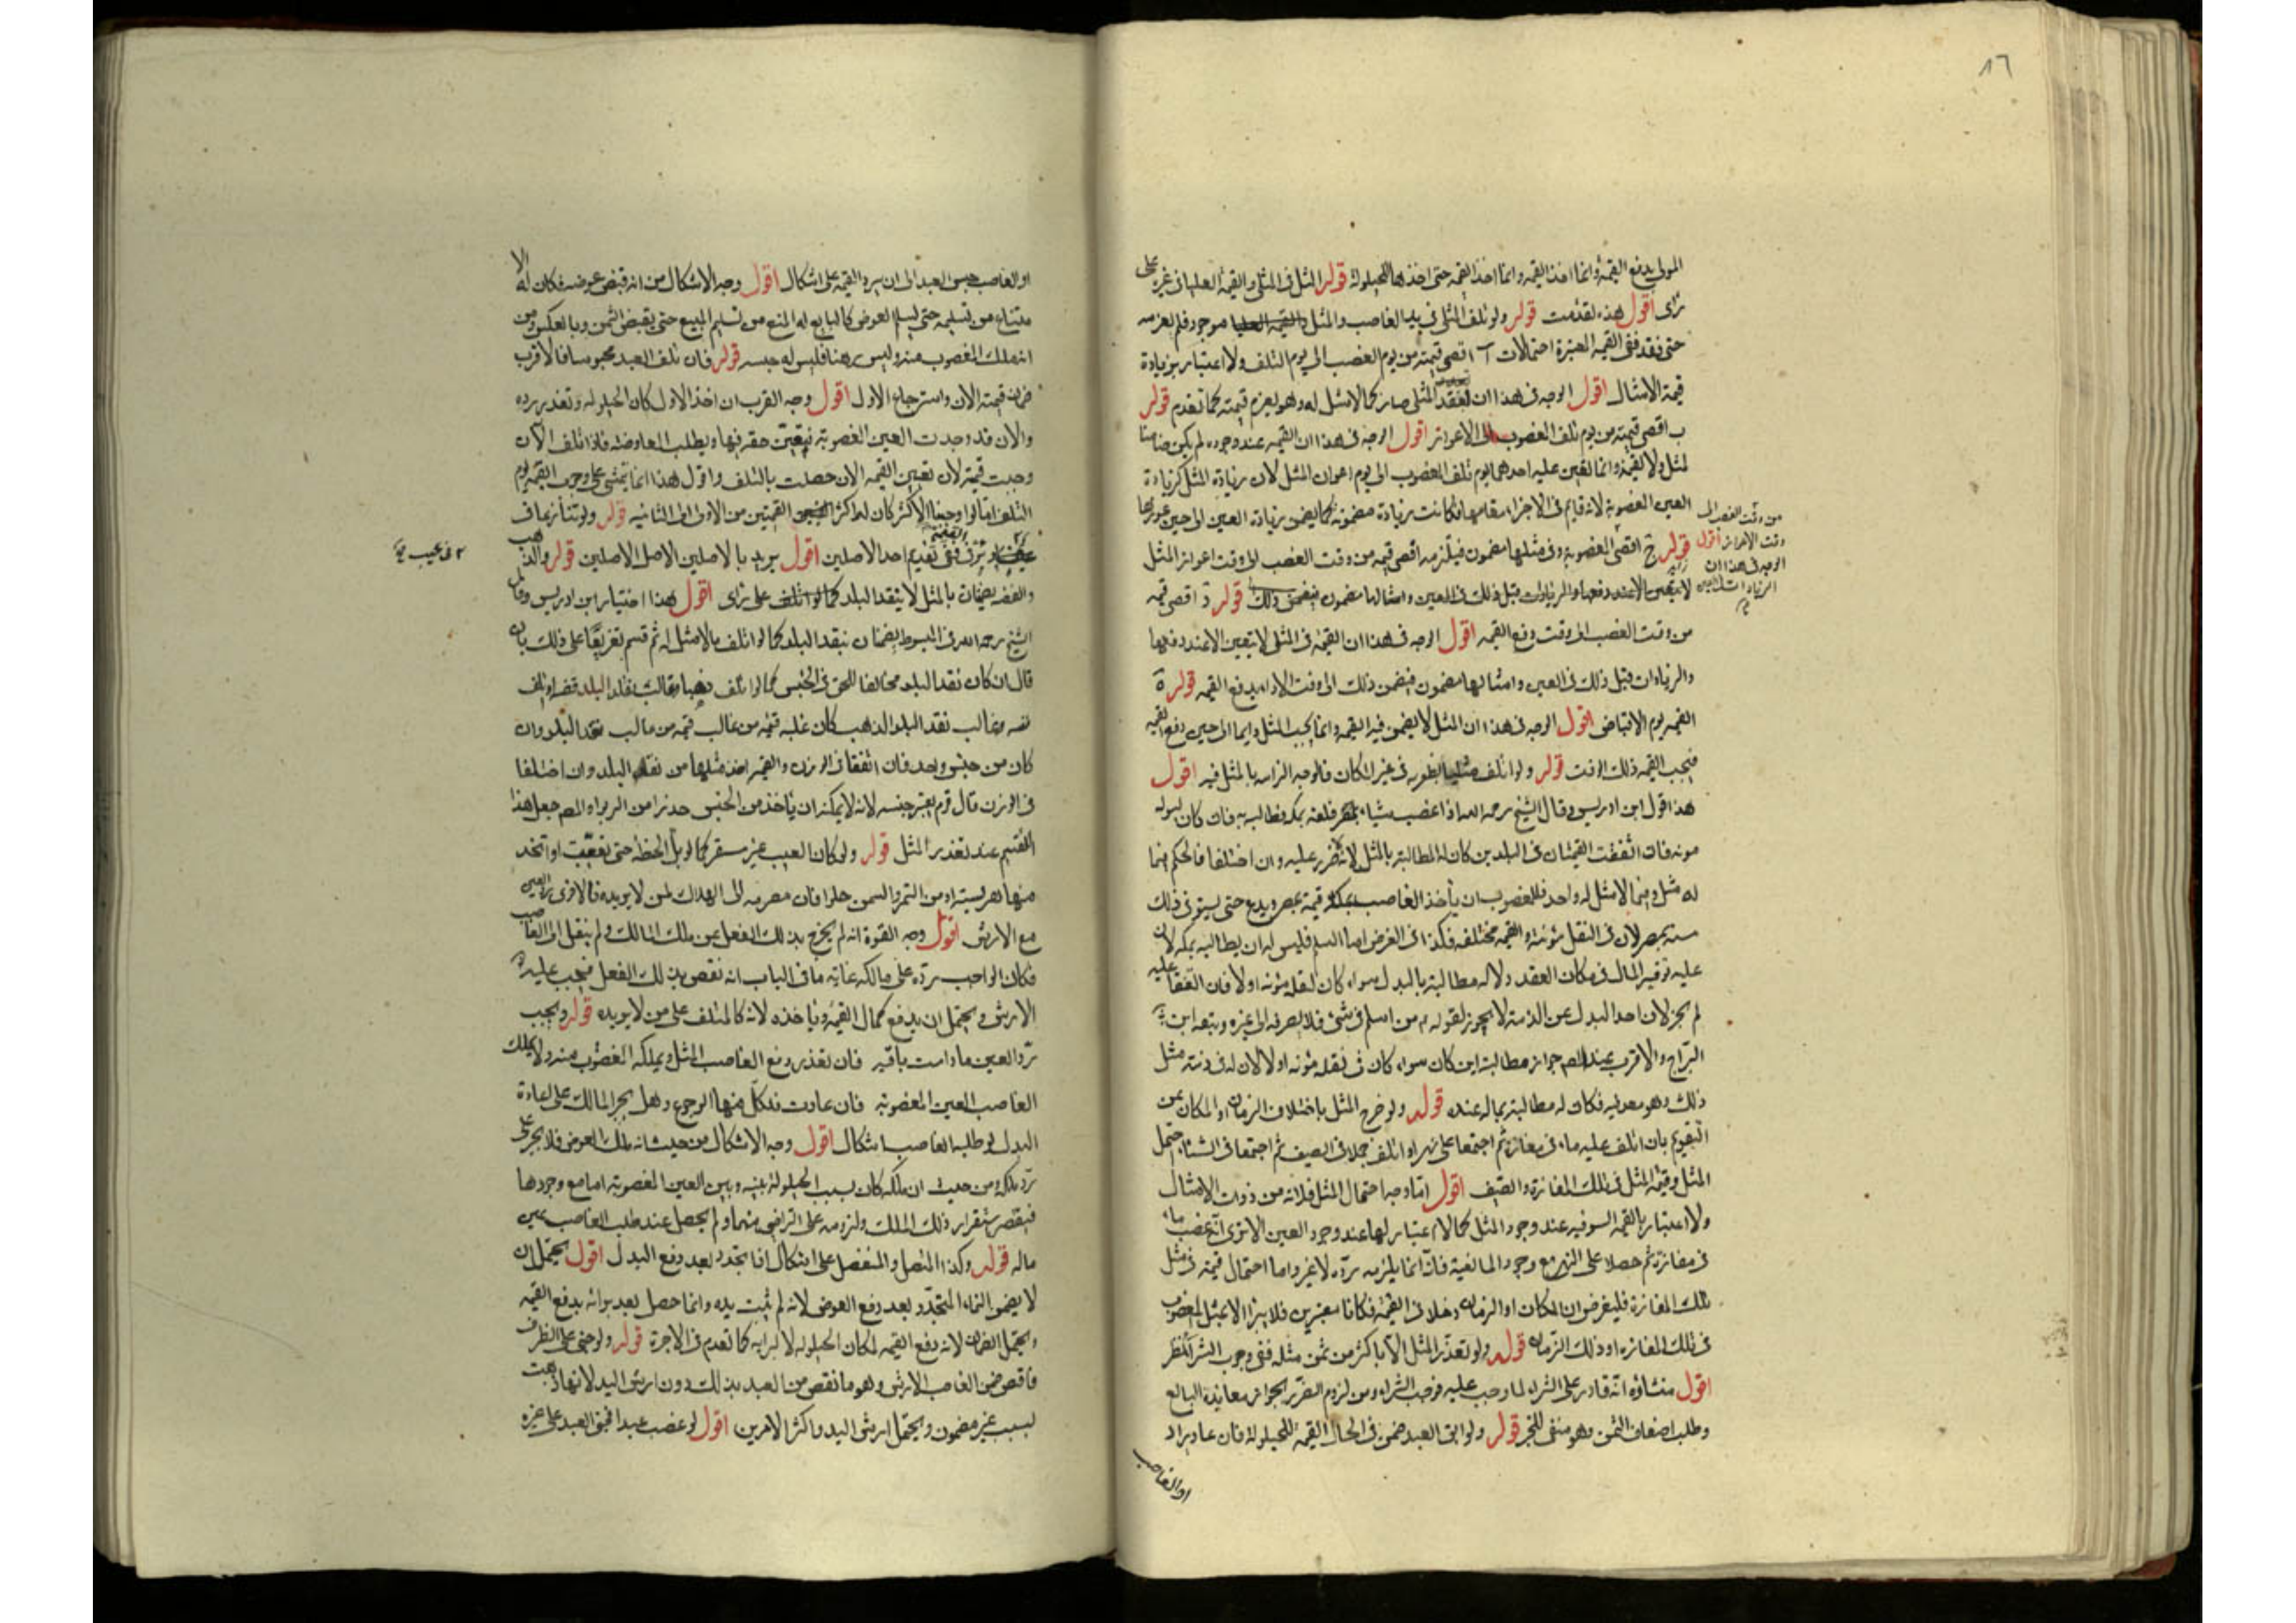 ٨٦
المولى بدفع القيمة وانما اخذ القيمة وانما اخذ القيمة حتى اخذها للحيلولة قوله المثل في المثلي والقيمة العليا في غيره على
رأى اقول هذه تقدمت قوله ولو تلف المثلي في يد الغاصب والمثل موجود فلم يغرمه
حتى فقد ففي القيمة المعتبرة احتمالات آ اقصى قيمته من يوم الغصب الى يوم التلف ولا اعتبار بزيادة
قيمة الامثال اقول الوجه في هذا ان المثلي صار كما لا مثل له وهو يغرم قيمته كما تقدم قوله
ب اقصى قيمته من يوم تلف المغصوب الى الاعواز اقول الوجه في هذا ان القيمة عند وجوده لم يكن ضامنا
لمثل ولا لقيمة وانما تعين عليه احدهما يوم تلف المغصوب الى يوم اعواز المثل لان زيادة المثل كزيادة
العين المغصوبة لانه قايم في الاجزاء مقامها فكانت زيادة مضمونة كما يضمن بزيادة العين الى حين عوزها
قوله ج اقصى المغصوبة وفي مثلها مضمون فيلزمه اقصى قيمه من وقت الغصب الى وقت اعواز المثل
من وقت الغصب الى
وقت الاعواز اقول
الوجه في هذا ان
لا يتعين الا عند دفعها والزيادات قبل ذلك في العين وامثالها مضمون فيضمن ذلك قوله د اقصى قيمه
من وقت الغصب الى وقت دفع القيمه اقول الوجه في هذا ان القيمة في المثل لا يتعين الا عند دفعها
والزيادات قبل ذلك في العين وامثالها مضمون فيضمن ذلك الى وقت الاداء بدفع القيمه قوله ه
القيمه يوم الاقباض اقول الوجه في هذا ان المثل لا يضمن فيه القيمه وانما يجب المثل دايما الى حين دفع القيمه
فيجب القيمه ذلك الوقت قوله ولو اتلف في غير المكان فالوجه الزامه بالمثل فيه اقول
هذا قول ابن ادريس وقال الشيخ رحمه الله اذا غصب شيئا بمصر فلقيه بمكه فطالبه به فان كان لنوله
مونه فان اتفقت القيمتان في البلدين كان له المطالبة بالمثل لانه لا ضرر عليه وان اختلفا فالحكم فيما
له مثل وفيما لا مثل له واحد فللمغصوب ان ياخذ الغاصب بمكه قيمة بمصر ويدع حتى يستوفي ذلك
منه بمصر لان في النقل مؤنته والقيمه مختلفه فكذا في القرض اما السلم فليس له ان يطالبه بمكه لان
عليه توفير المال في مكان العقد ولا له مطالبة بالبدل سواء كان لنقله مؤنه اولا فان اتفقا عليه
لم يجز لان اخذ البدل عن الذمة لا يجوز لقوله من اسلم في شئ فلا يصرفه الى غيره وتبعه ابن
البراج والاقرب عند المصه جواز مطالبته اين كان سواء كان في نقله مؤنه اولا لان له في ذمته مثل
ذلك وهو معه فكان له مطالبة بماله عنده قوله ولو خرج المثل باختلاف الزمان او المكان عن
التقويم بان اتلف عليه ماء في مفازة ثم اجتمعا على نهر او اتلف جمدا في الصيف ثم اجتمعا في الشتاء احتمل
المثل وقيمة المثل في تلك المفازة والصيف اقول اما وجه احتمال المثل فلانه من ذوات الامثال
ولا اعتبار بالقيمه السوقيه عند وجود المثل كما لا اعتبار لها عند وجود العين الا ترى انه لو غصب ماء
في مفازة ثم حصلا على النهر مع وجود الماء بعينه فانه انما يلزمه رده لا غير واما احتمال قيمته في مثل
تلك المفازة فليفرض ان المكان او الزمان دخلا في القيمة فكانا معتبرين فلا يبرا الا بمثل المغصوب
في تلك المفازه او ذلك الزمان قوله ولو تعذر المثل الا باكثر من ثمن مثله ففي وجوب الشراء نظر
اقول منشاؤه انه قادر على الشراء لما وجب عليه فوجب الشراء ومن لزوم الضرر لجواز معاندة البايع
وطلب اضعاف الثمن وهو منفي للخبر قوله ولو ابق العبد ضمن في الحال القيمة للحيلولة فان عاد تراد
او الغاصب
او الغاصب حبس العبد الى ان يرد القيمة على اشكال اقول وجه الاشكال من انه قبض عوضه فكان له الا
متناع من تسليمه حتى يسلم العوض كالبايع له المنع من تسليم المبيع حتى يقبض الثمن وبالعكس ومن
انه ملك المغصوب منه وليس رهنا فليس له حبسه قوله فان تلف العبد محبوسا فالاقرب
ضمان قيمته الان واسترجاع الاول اقول وجه القرب ان اخذ الاول كان لحيلولة وتعذر رده
والان قد وجدت العين المغصوبة فيتعين حقه فيها ويطلب المعاوضه فاذا تلف الآن
وجبت قيمته لان تعين القيمه الان حصلت بالتلف واقول هذا انما يتمشى على وجوب القيمه يوم
التلف اما لو اوجبنا الاكثر كان له اكثر القيمتين من الاولى الى الثانيه قوله ولو تنازعا في
ففي تقديم احد الاصلين اقول يريد بالاصلين الاصل الاصلين قوله والذهب
والفضه يضمنان بالمثل لا بنقد البلد على رأى اقول هذا اختيار ابن ادريس وقال
الشيخ رحمه الله في المبسوط يضمنان بنقد البلد كما لو اتلف ما لا مثل له ثم قسم تفريعا على ذلك بان
قال ان كان نقد البلد مخالفا للحق في الجنس كما لو اتلف وغالب نقد البلد فضه او اتلف
فضه وغالب نقد البلد الذهب كان عليه قيمته من غالب نقد البلد وان
كان من جنس واحد فان اتفقا في الوزن والقيمه اخذ مثلها من نقد البلد وان اختلفا
في الوزن قال قوم بغير جنسه لانه لا يمكنه ان ياخذ من الجنس حذرا من الربوا والمصه جعل هذا
القسم عند تعذر المثل قوله ولو كان العيب غير مستقر كما لو بل الحنطه حتى تعفنت او اتخذ
منها هريسة او من التمر والسمن حلوا فان مصيره الى الهلاك لمن لا يريده فالاقوى رد العين
مع الارش اقول وجه القوة انه لم يخرج بذلك الفعل عن ملك المالك ولم ينتقل الى الغاصب
فكان الواجب رده على مالكه غاية ما في الباب انه نقص بذلك الفعل فيجب عليه
الارش ويحتمل ان يدفع كمال القيمة وياخذه لانه كالمتلف على من لا يريده قوله ويجب
رد العين ما دامت باقيه فان تعذر دفع الغاصب المثل ويملكه المغصوب منه ولا يملك
الغاصب العين المغصوبه فان عادت فلكل منهما الرجوع وهل يجبر المالك على اعادة
البدل لو طلبه الغاصب اشكال اقول وجه الاشكال من حيث انه ملك العوض فلا يجبر على
رد ملكه ومن حيث ان ملكه كان بسبب الحيلولة بينه وبين العين المغصوبه اما مع وجودها
فيقصر استقرار ذلك الملك ولزومه على التراضي منهما ولم يحصل عند طلب الغاصب عين
ماله قوله وكذا المتصل والمنفصل على اشكال اذا تجدد بعد دفع البدل اقول يحتمل ان
لا يضمن النماء المتجدد بعد دفع العوض لانه لم يثبت يده وانما حصل بعد براءته بدفع القيمه
ويحتمل الضمان لانه دفع القيمه لمكان الحيلوله لا لبراءته كما تقدم في الاجرة قوله ولو جنى على الطرف
فاقتص ضمن الغاصب الارش وهو ما نقص من العبد بذلك دون ارش اليد لانها ذهبت
لسبب غير مضمون ويحتمل ارش اليد واكثر الامرين اقول لو غصب عبدا فجنى العبد على غيره